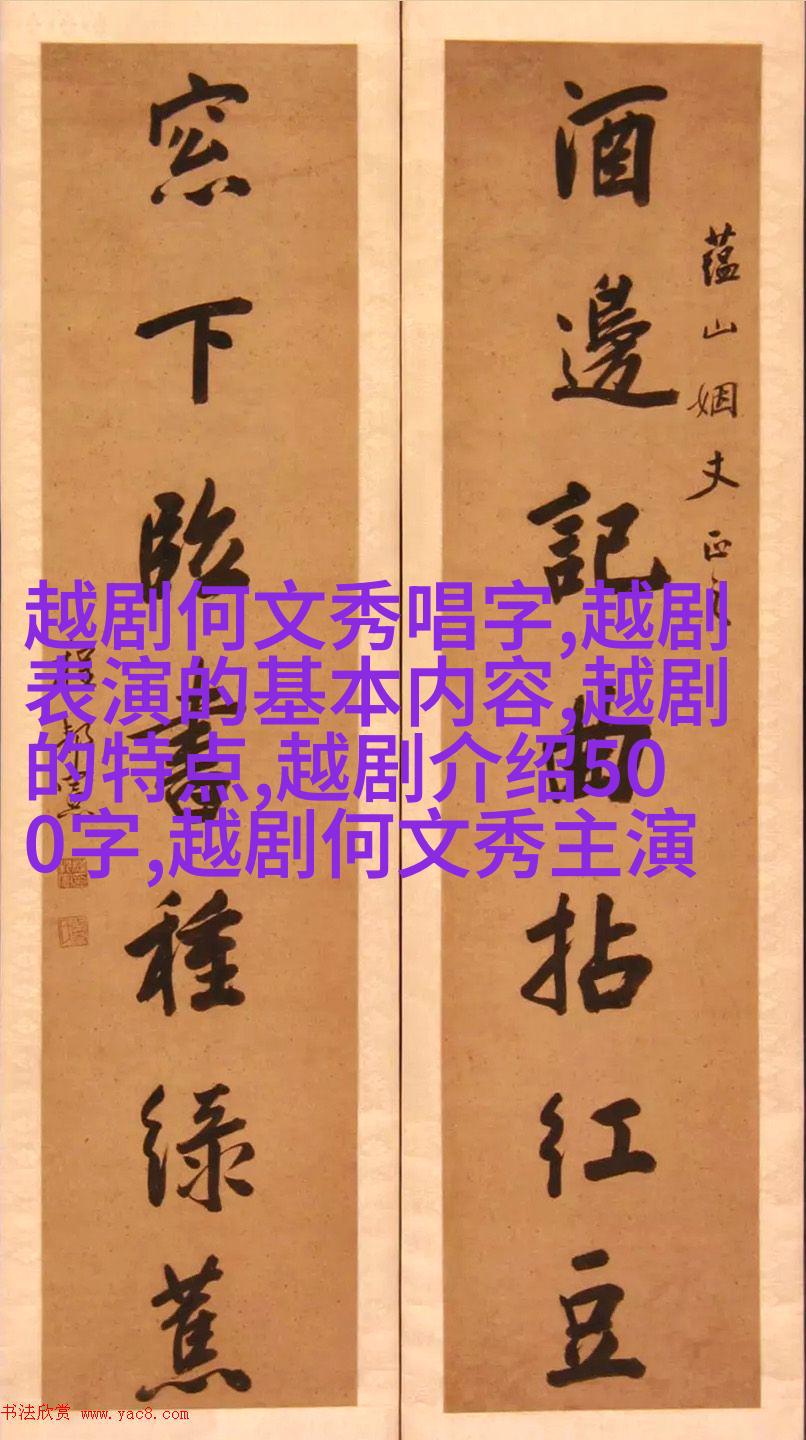 蘊山姻丈正之
酒邊記曲拈紅豆
窓下臨書種緑蕉
越剧何文秀唱字,越剧
表演的基本内容,越剧
的特点,越剧介绍50
0字,越剧何文秀主演
书法欣赏 www.yac8.com